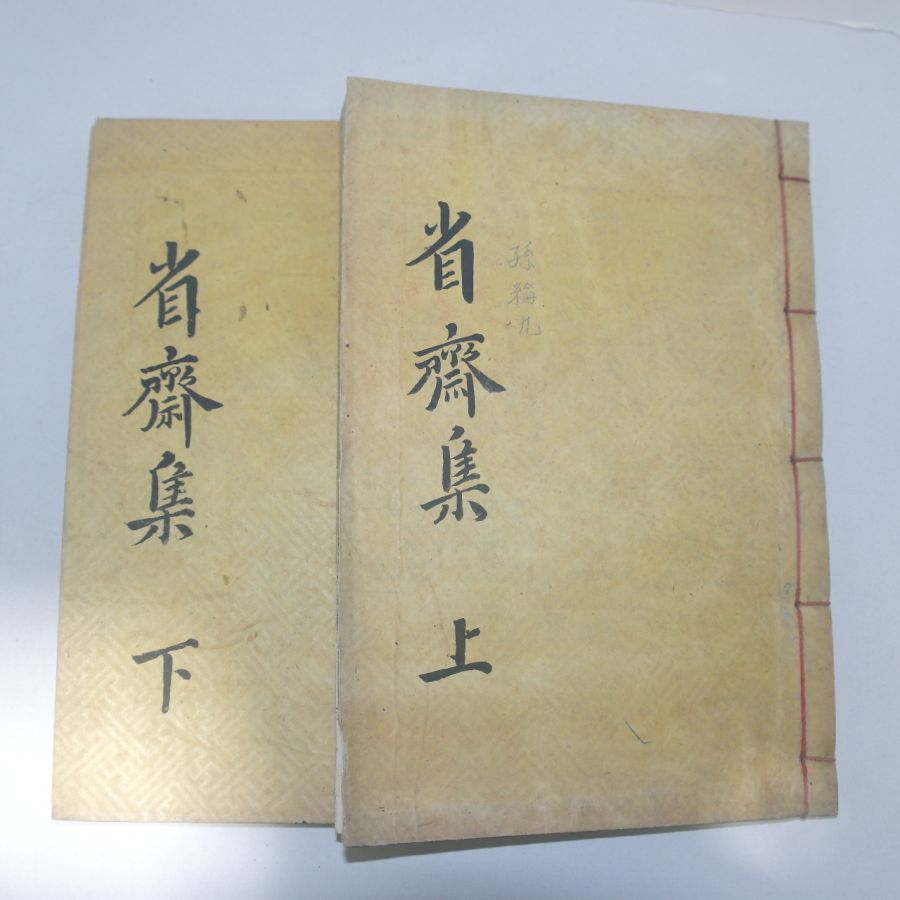 孫綸九
省齋集 上
省齋集 下